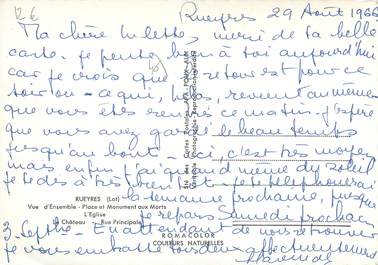 12 €
Rueyres 29 Août 1966
Ma chère merci de ta belle
carte. je pense bien à toi aujourd'hui
car je crois que le retour est pour ce
soir ou - ce qui, hélas, revient au même
que vous êtes ce matin - j'espère
que vous avez gardé le beau temps
jusqu'au bout - ici, c'est très moyen
mais enfin j'ai quand même du soleil
je te dis à très bientôt - je te téléphonerai
RUEYRES (Lot)
la semaine prochaine, puisque
Vue d'Ensemble - Place et Monument aux Morts
L'Eglise
je repars samedi prochain
Le Château - Rue Principale
ROMACOLOR
3 Septbre - En attendant de nous retrouver
COULEURS NATURELLES
je vous embrasse tous deux affectueusement